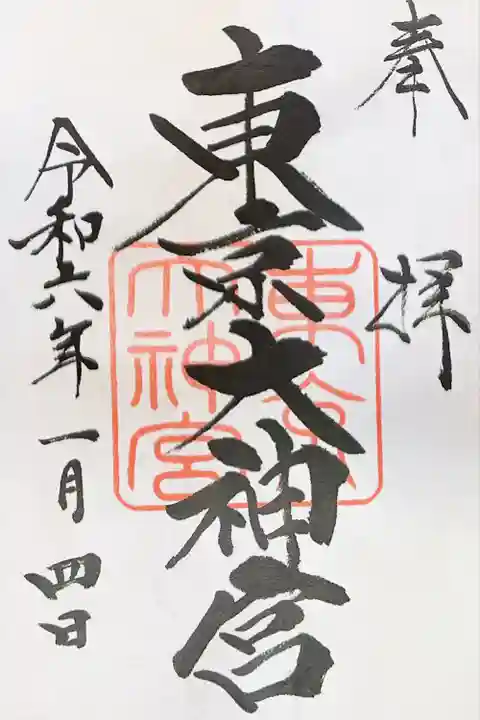 奉拝
東京大神宮
東京
大神宮
令和六年一月四日